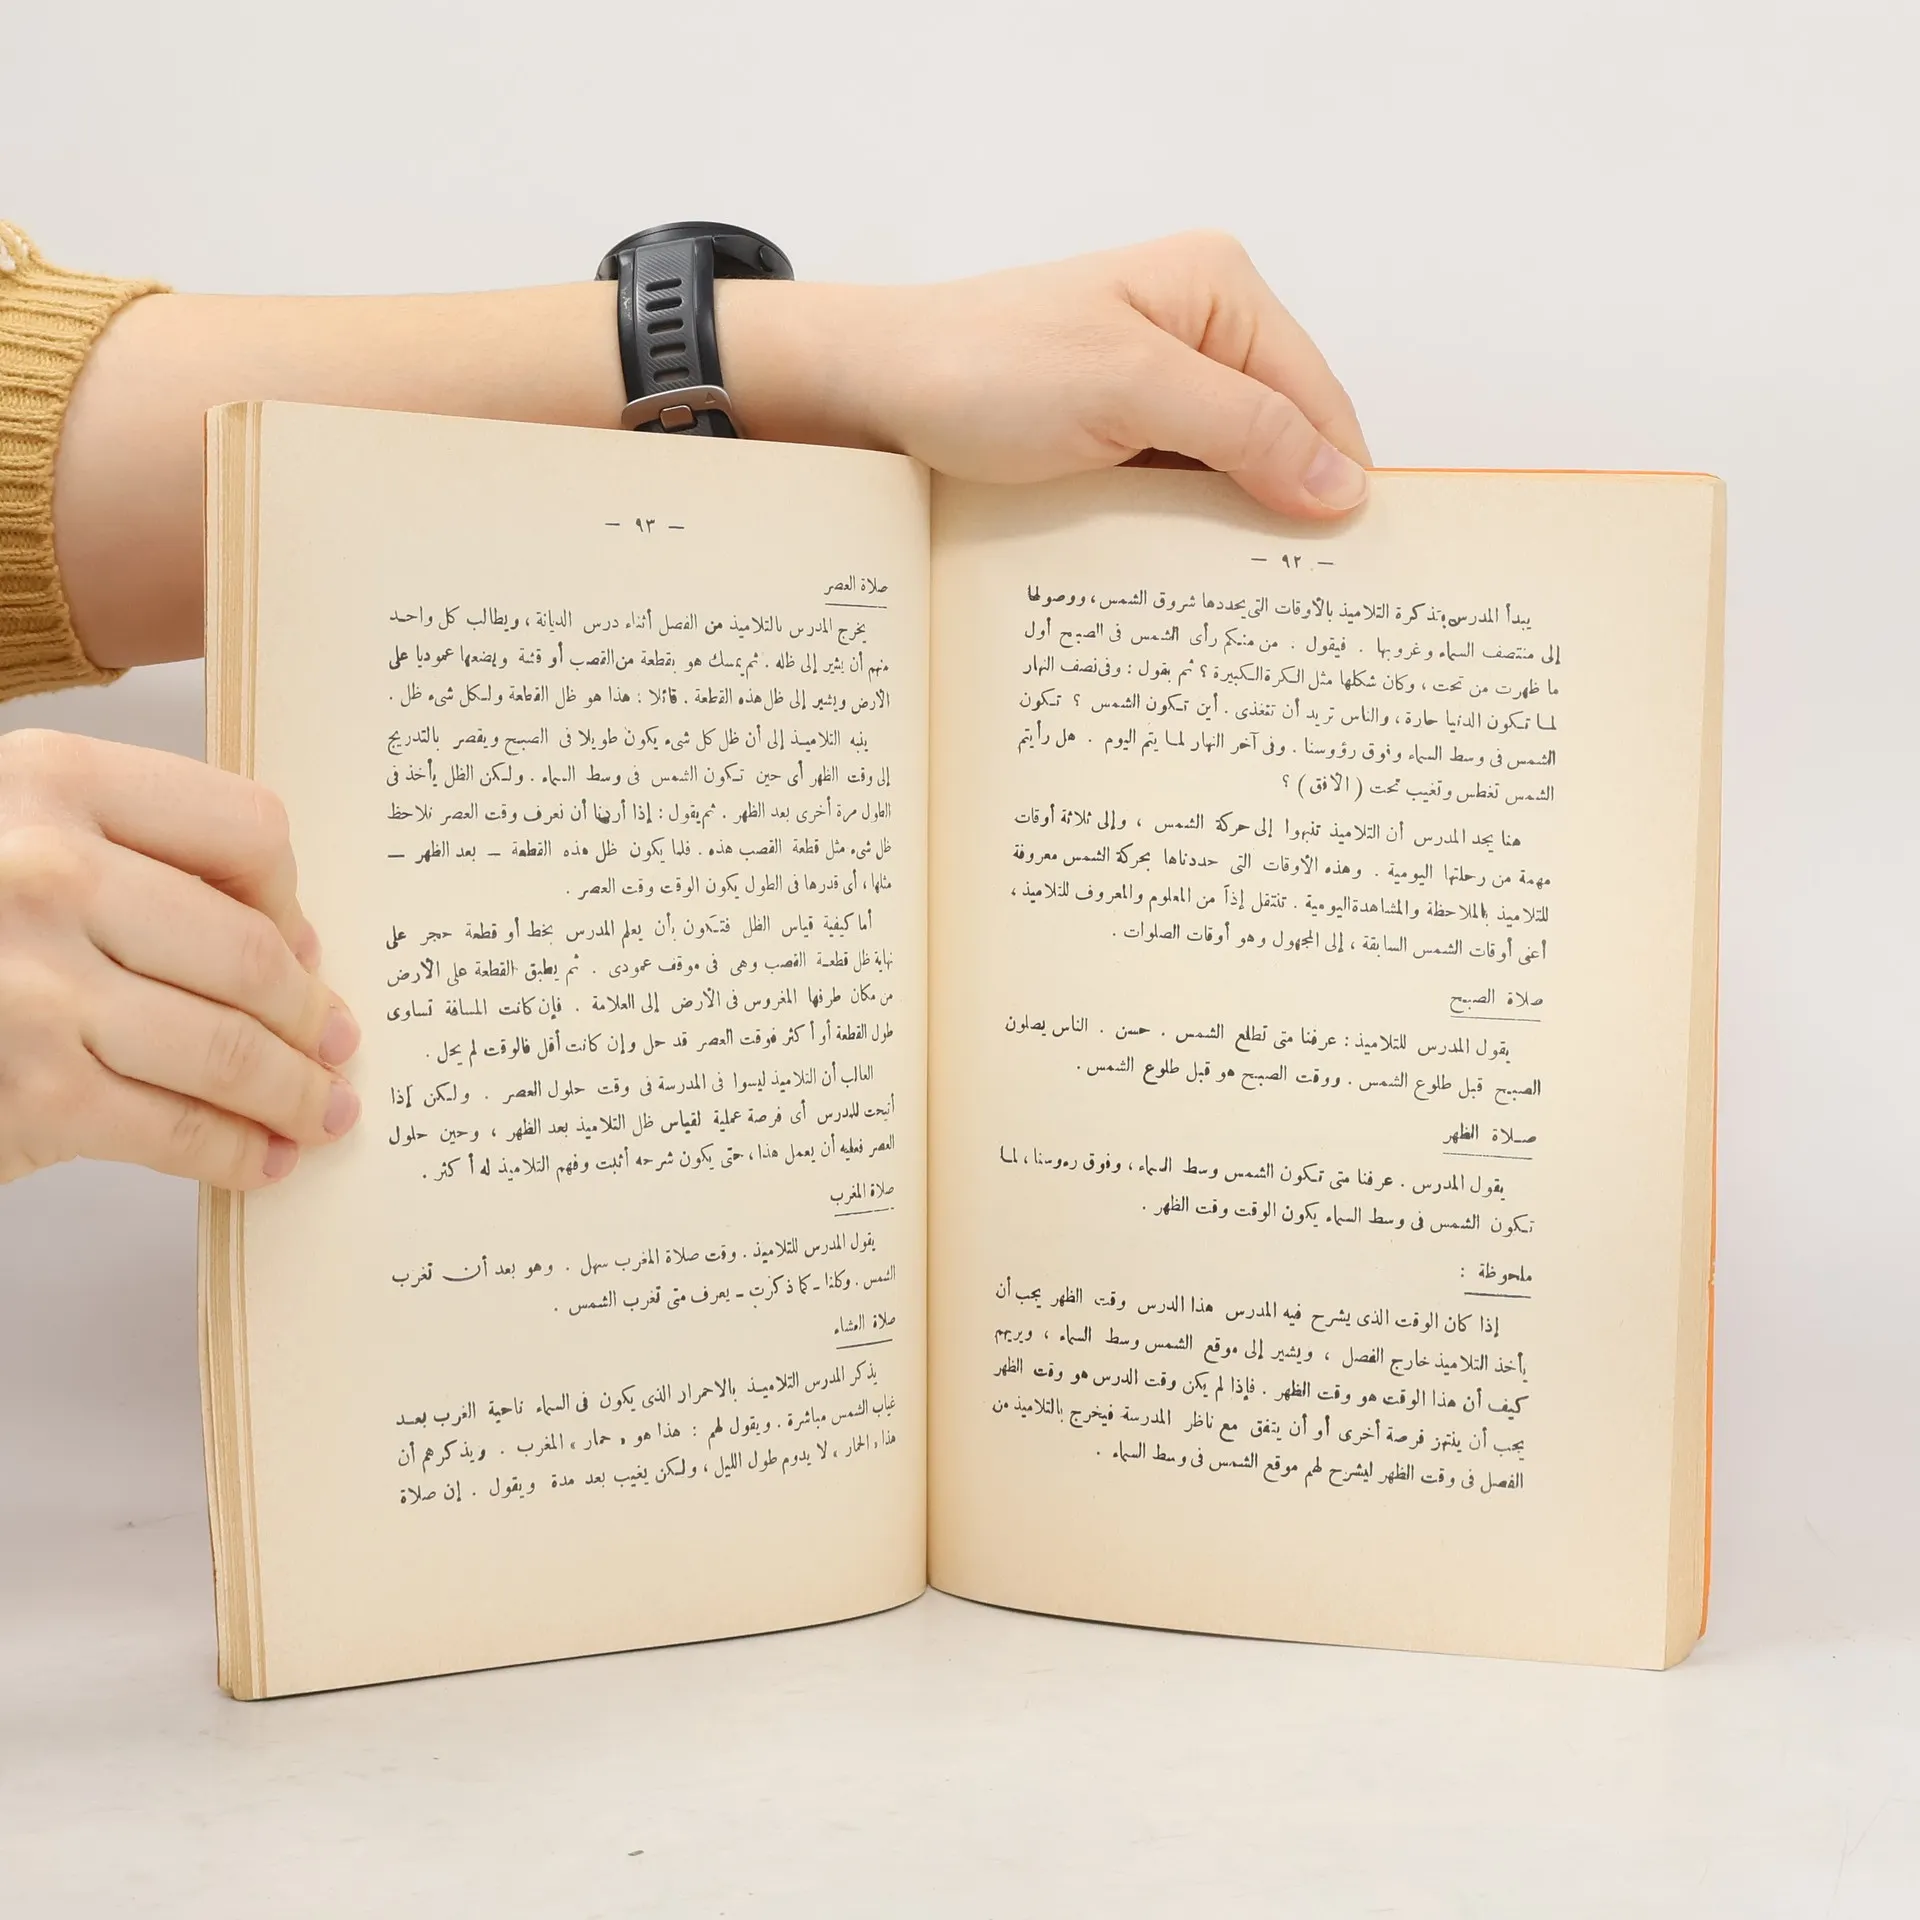 — ٩٢ —
يبدأ المدرس بتذكرة التلاميذ بالأوقات التى يحددها شروق الشمس، ووصولها
إلى منتصف السماء وغروبها . فيقول . من منكم رأى الشمس فى الصبح أول
ما ظهرت من تحت ، وكان شكلها مثل الكرة الكبيرة ؟ ثم يقول : وفى نصف النهار
لما تكون الدنيا حارة ، والناس تريد أن تتغذى . أين تكون الشمس ؟ تكون
الشمس فى وسط السماء وفوق رؤوسنا . وفى آخر النهار لما يتم اليوم . هل رأيتم
الشمس تغطس وتغيب تحت ( الأفق ) ؟
هنا يجد المدرس أن التلاميذ تنبهوا إلى حركة الشمس ، وإلى ثلاثة أوقات
مهمة من رحلتها اليومية . وهذه الأوقات التى حددناها بحركة الشمس معروفة
للتلاميذ بالملاحظة والمشاهدة اليومية . ننتقل إذاً من المعلوم والمعروف للتلاميذ ،
أعنى أوقات الشمس السابقة ، إلى المجهول وهو أوقات الصلوات .
صلاة الصبح
يقول المدرس للتلاميذ : عرفنا متى تطلع الشمس . حسن . الناس يصلون
الصبح قبل طلوع الشمس . ووقت الصبح هو قبل طلوع الشمس .
صلاة الظهر
يقول المدرس . عرفنا متى تكون الشمس وسط السماء ، وفوق رءوسنا ، لما
تكون الشمس فى وسط السماء يكون الوقت وقت الظهر .
ملحوظة :
إذا كان الوقت الذى يشرح فيه المدرس هذا الدرس وقت الظهر يجب أن
يأخذ التلاميذ خارج الفصل ، ويشير إلى موقع الشمس وسط السماء ، ويريهم
كيف أن هذا الوقت هو وقت الظهر . فإذا لم يكن وقت الدرس هو وقت الظهر
يجب أن ينتهز فرصة أخرى أو أن يتفق مع ناظر المدرسة فيخرج بالتلاميذ من
الفصل فى وقت الظهر ليشرح لهم موقع الشمس فى وسط السماء .
— ٩٣ —
صلاة العصر
يخرج المدرس بالتلاميذ من الفصل أثناء درس الديانة ، ويطالب كل واحد
منهم أن يشير إلى ظله . ثم يمسك هو بقطعة من القصب أو قشة ويضعها عموديا على
الأرض ويشير إلى ظل هذه القطعة . قائلا : هذا هو ظل القطعة ولكل شىء ظل .
ينبه التلاميذ إلى أن ظل كل شىء يكون طويلا فى الصبح ويقصر بالتدريج
إلى وقت الظهر أى حين تكون الشمس فى وسط السماء . ولكن الظل يأخذ فى
الطول مرة أخرى بعد الظهر . ثم يقول : إذا أردنا أن نعرف وقت العصر نلاحظ
ظل شىء مثل قطعة القصب هذه . فلما يكون ظل هذه القطعة — بعد الظهر —
مثلها ، أى قدرها فى الطول يكون الوقت وقت العصر .
أما كيفية قياس الظل فتكون بأن يعلم المدرس بخط أو قطعة حجر على
نهاية ظل قطعة القصب وهى فى موقف عمودى . ثم يطبق القطعة على الأرض
من مكان طرفها المغروس فى الأرض إلى العلامة . فإن كانت المسافة تساوى
طول القطعة أو أكثر فوقت العصر قد حل وإن كانت أقل فالوقت لم يحل .
الغالب أن التلاميذ ليسوا فى المدرسة فى وقت حلول العصر . ولكن إذا
أتيحت للمدرس أى فرصة عملية لقياس ظل التلاميذ بعد الظهر ، وحين حلول
العصر فعليه أن يعمل هذا ، حتى يكون شرحه أثبت وفهم التلاميذ له أكثر .
صلاة المغرب
يقول المدرس للتلاميذ . وقت صلاة المغرب سهل . وهو بعد أن تغرب
الشمس . وكلنا – كما ذكرت – يعرف متى تغرب الشمس .
صلاة العشاء
يذكر المدرس التلاميذ بالاحمرار الذى يكون فى السماء ناحية الغرب بعد
غياب الشمس مباشرة . ويقول لهم : هذا هو « حمار » المغرب . ويذكرهم أن
هذا « الحمار » لا يدوم طول الليل ، ولكن يغيب بعد مدة ويقول . إن صلاة